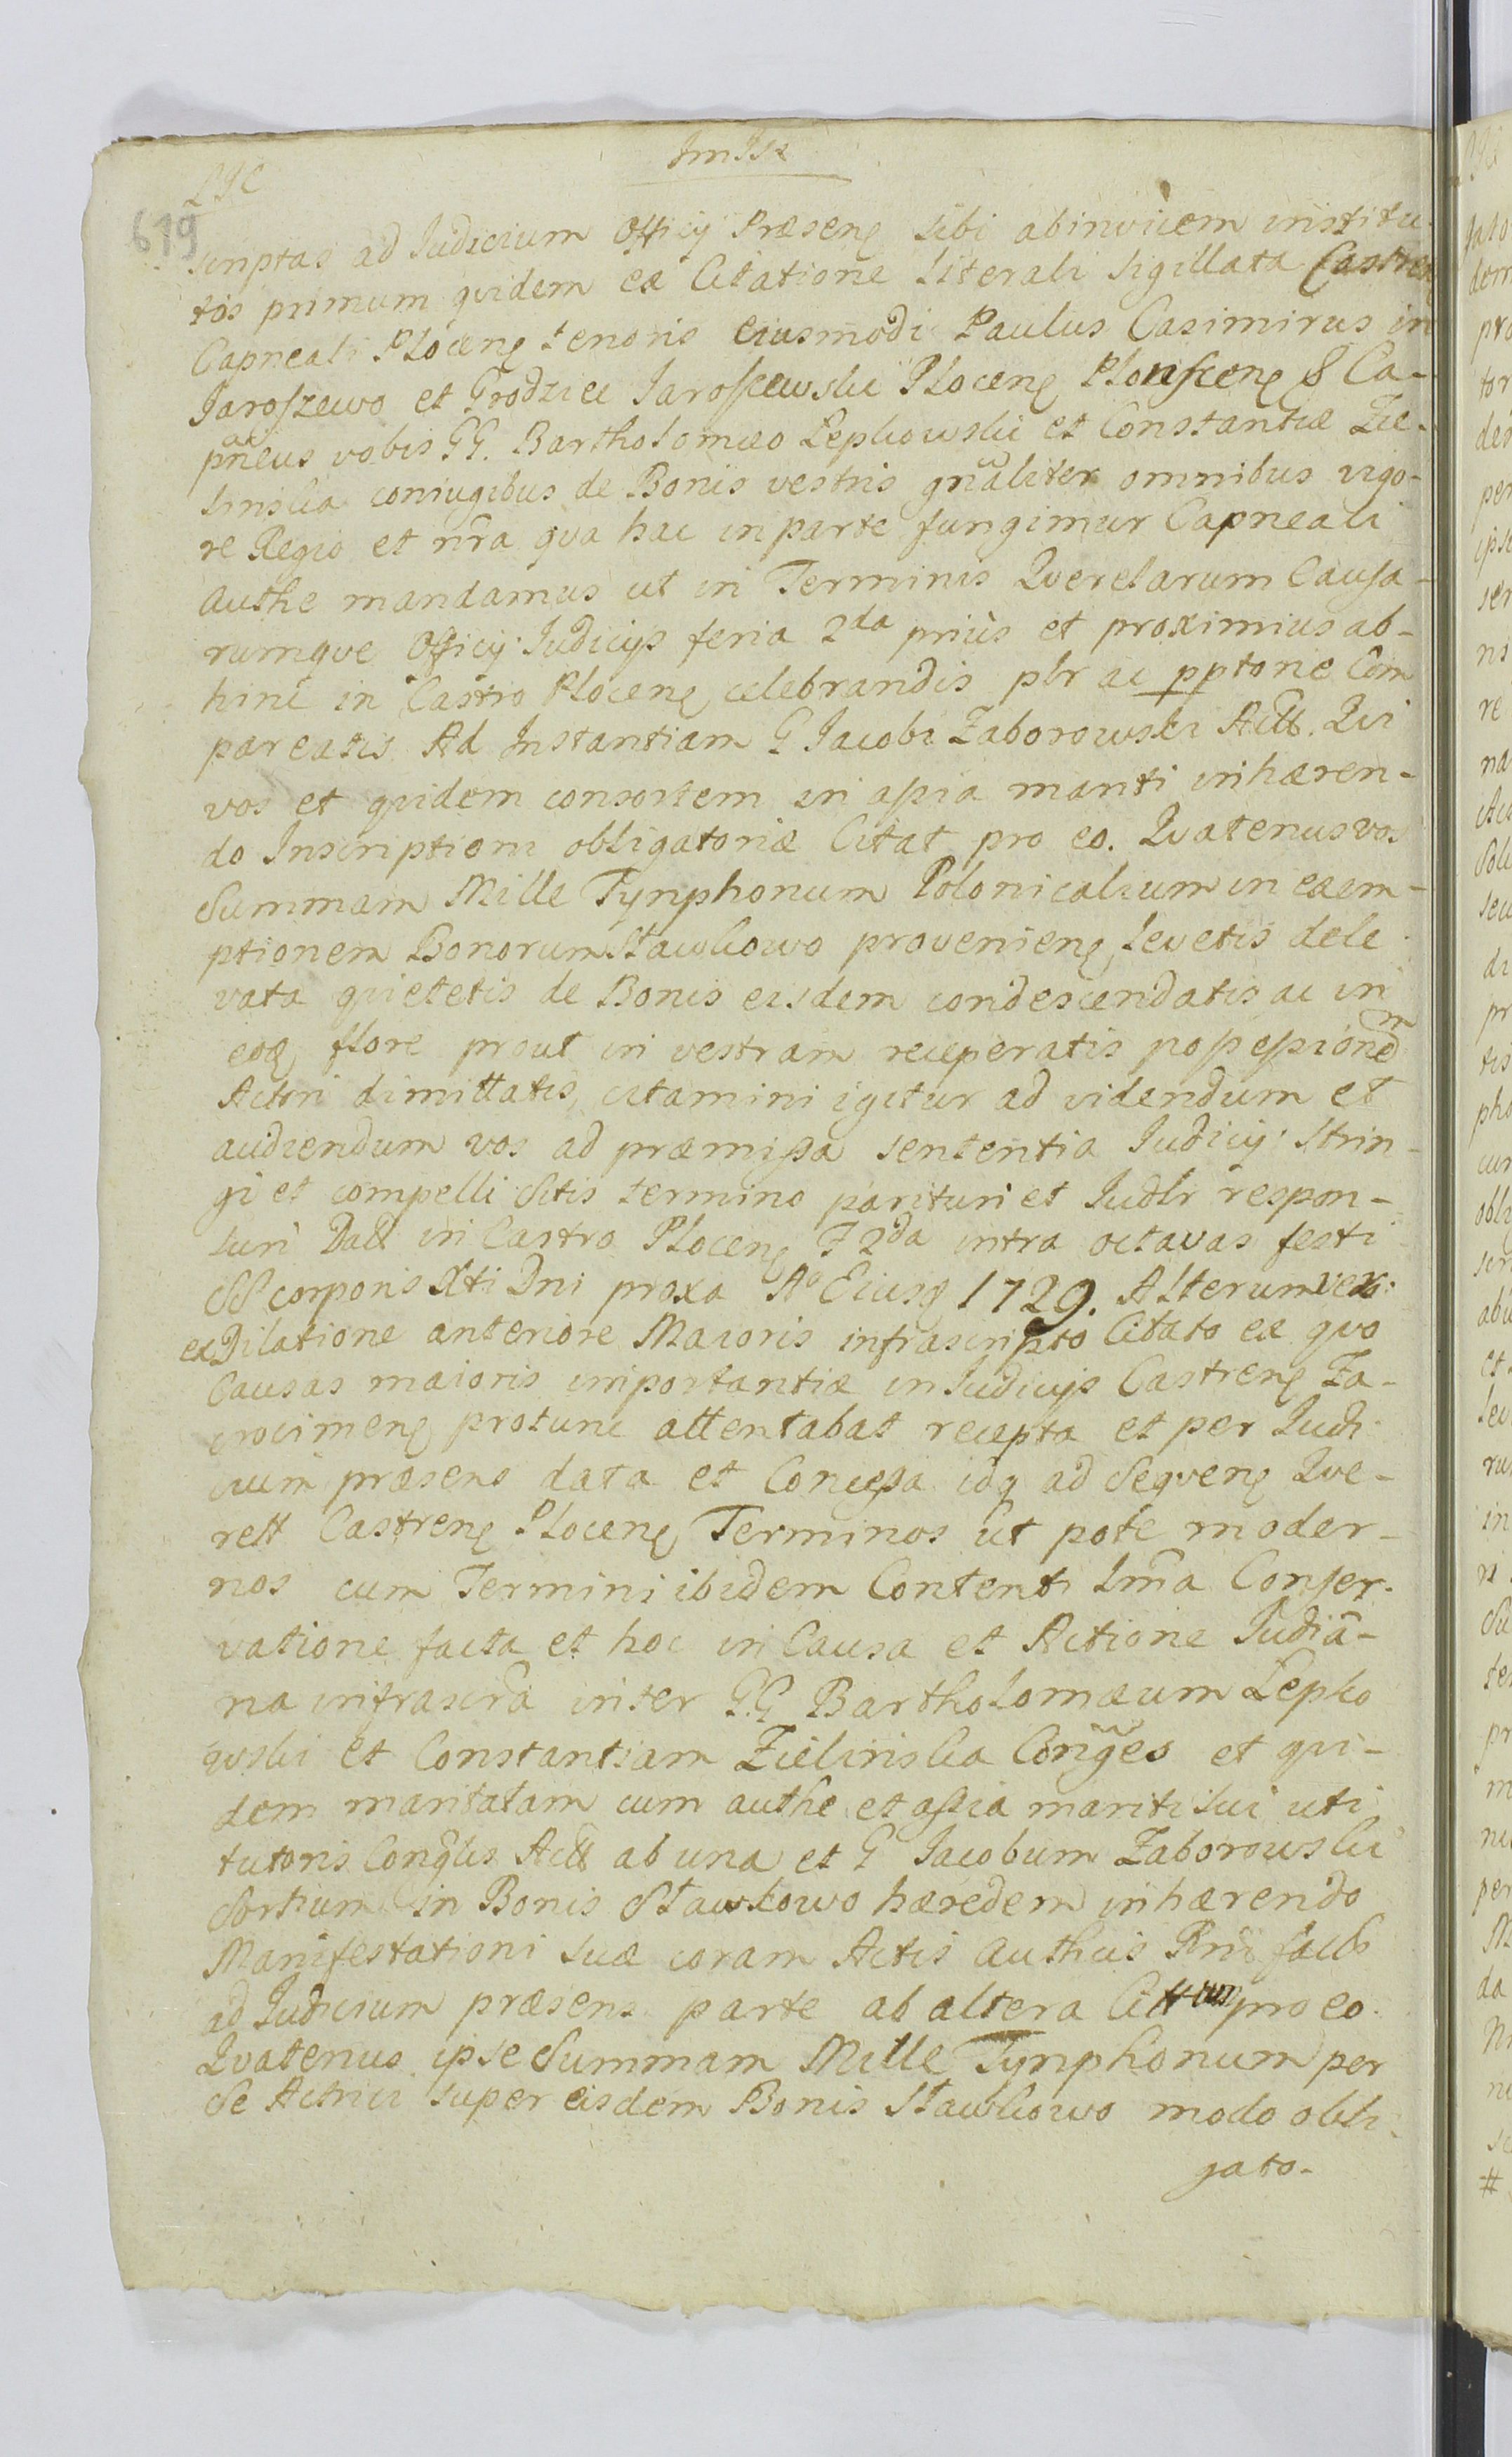 619
scriptas ad Judicium Officij Præsenę sibi abinvicem institu-
tos primum qvidem ex Citatione Literali Sigillata Castrenę
Capneali Plocenę tenoris eiusmodi Paulus Casimirus in
Jaroszewo et Grodziec Jaroszewski Plocenę Plonscenę & Ca-
pñeus vobis GG. Bartholomæo Lepkowski et Constantiæ Zie-
linska coniugibus de Bonis vestris gñaliter omnibus vigo-
re Regio et nr̃a qva hac in parte fungimur Capneali
Authe mandamus ut in Terminis Qverelarum Causa-
rumqve Officij Judicijs feria 2da prius et proximius ab-
hinc in Castro Plocenę celebrandis plr ac pptorie Com
pareatis Ad Instantiam G Jacobi Zaborowski Actt. Qvi
vos et qvidem consortem in assia mariti inhæren-
do Inscriptioni obligatoriæ Citat pro eo. Qvatenus vos
Summam Mille Tynphonum Polonicalium in exem-
ptionem Bonorum Stawkowo provenienę levetis dele
vata qvietetis de Bonis eisdem condescendatis ac in
eoę flore prout in vestram receperatis possessionem
Actori dimittatis, citamini igitur ad videndum et
audiendum vos ad præmissa sententia Judicij strin-
gi et compelli Sitis termino parituri et Judlr respon-
suri Datt in Castro Plocenę F 2da intra octavas festi
SS corporis Xti Dni proxa Ao Eiusę 1729. Alterum vero:
ex Dilatione anteriore Maioris infrascripto Citato ex qvo
Causas maioris importantiæ in Judicijs Castrenę Za-
crocimenę protunc attentabat recepta et per Judi
cium præsens data et Concessa idq ad Seqvenę Qve-
rell Castrenę Plocenę Terminos ut pote moder-
nos cum Termini ibidem Contenti Lm̃a Conser-
vatione facta et hoc in Causa et Actione Judiã-
na infrascr̃a inter GG Bartholomæum Lepko
wski et Constantiam Zielinska Conges et qvi-
dem maritatam cum authe et assia mariti sui uti
tutoris Conglis Actt ab una et G Jacobum Zaborowski
Sortium in Bonis Stawkowo hæredem inhærendo
Manifestationi suæ coram Actis Authcis
ad Judicium præsens parte ab altera Citt pro eo
Qvatenus ipse Summam Mille Tynphonum per
Se Actrici super eisdem Bonis Stawkowo modo obli
gato-